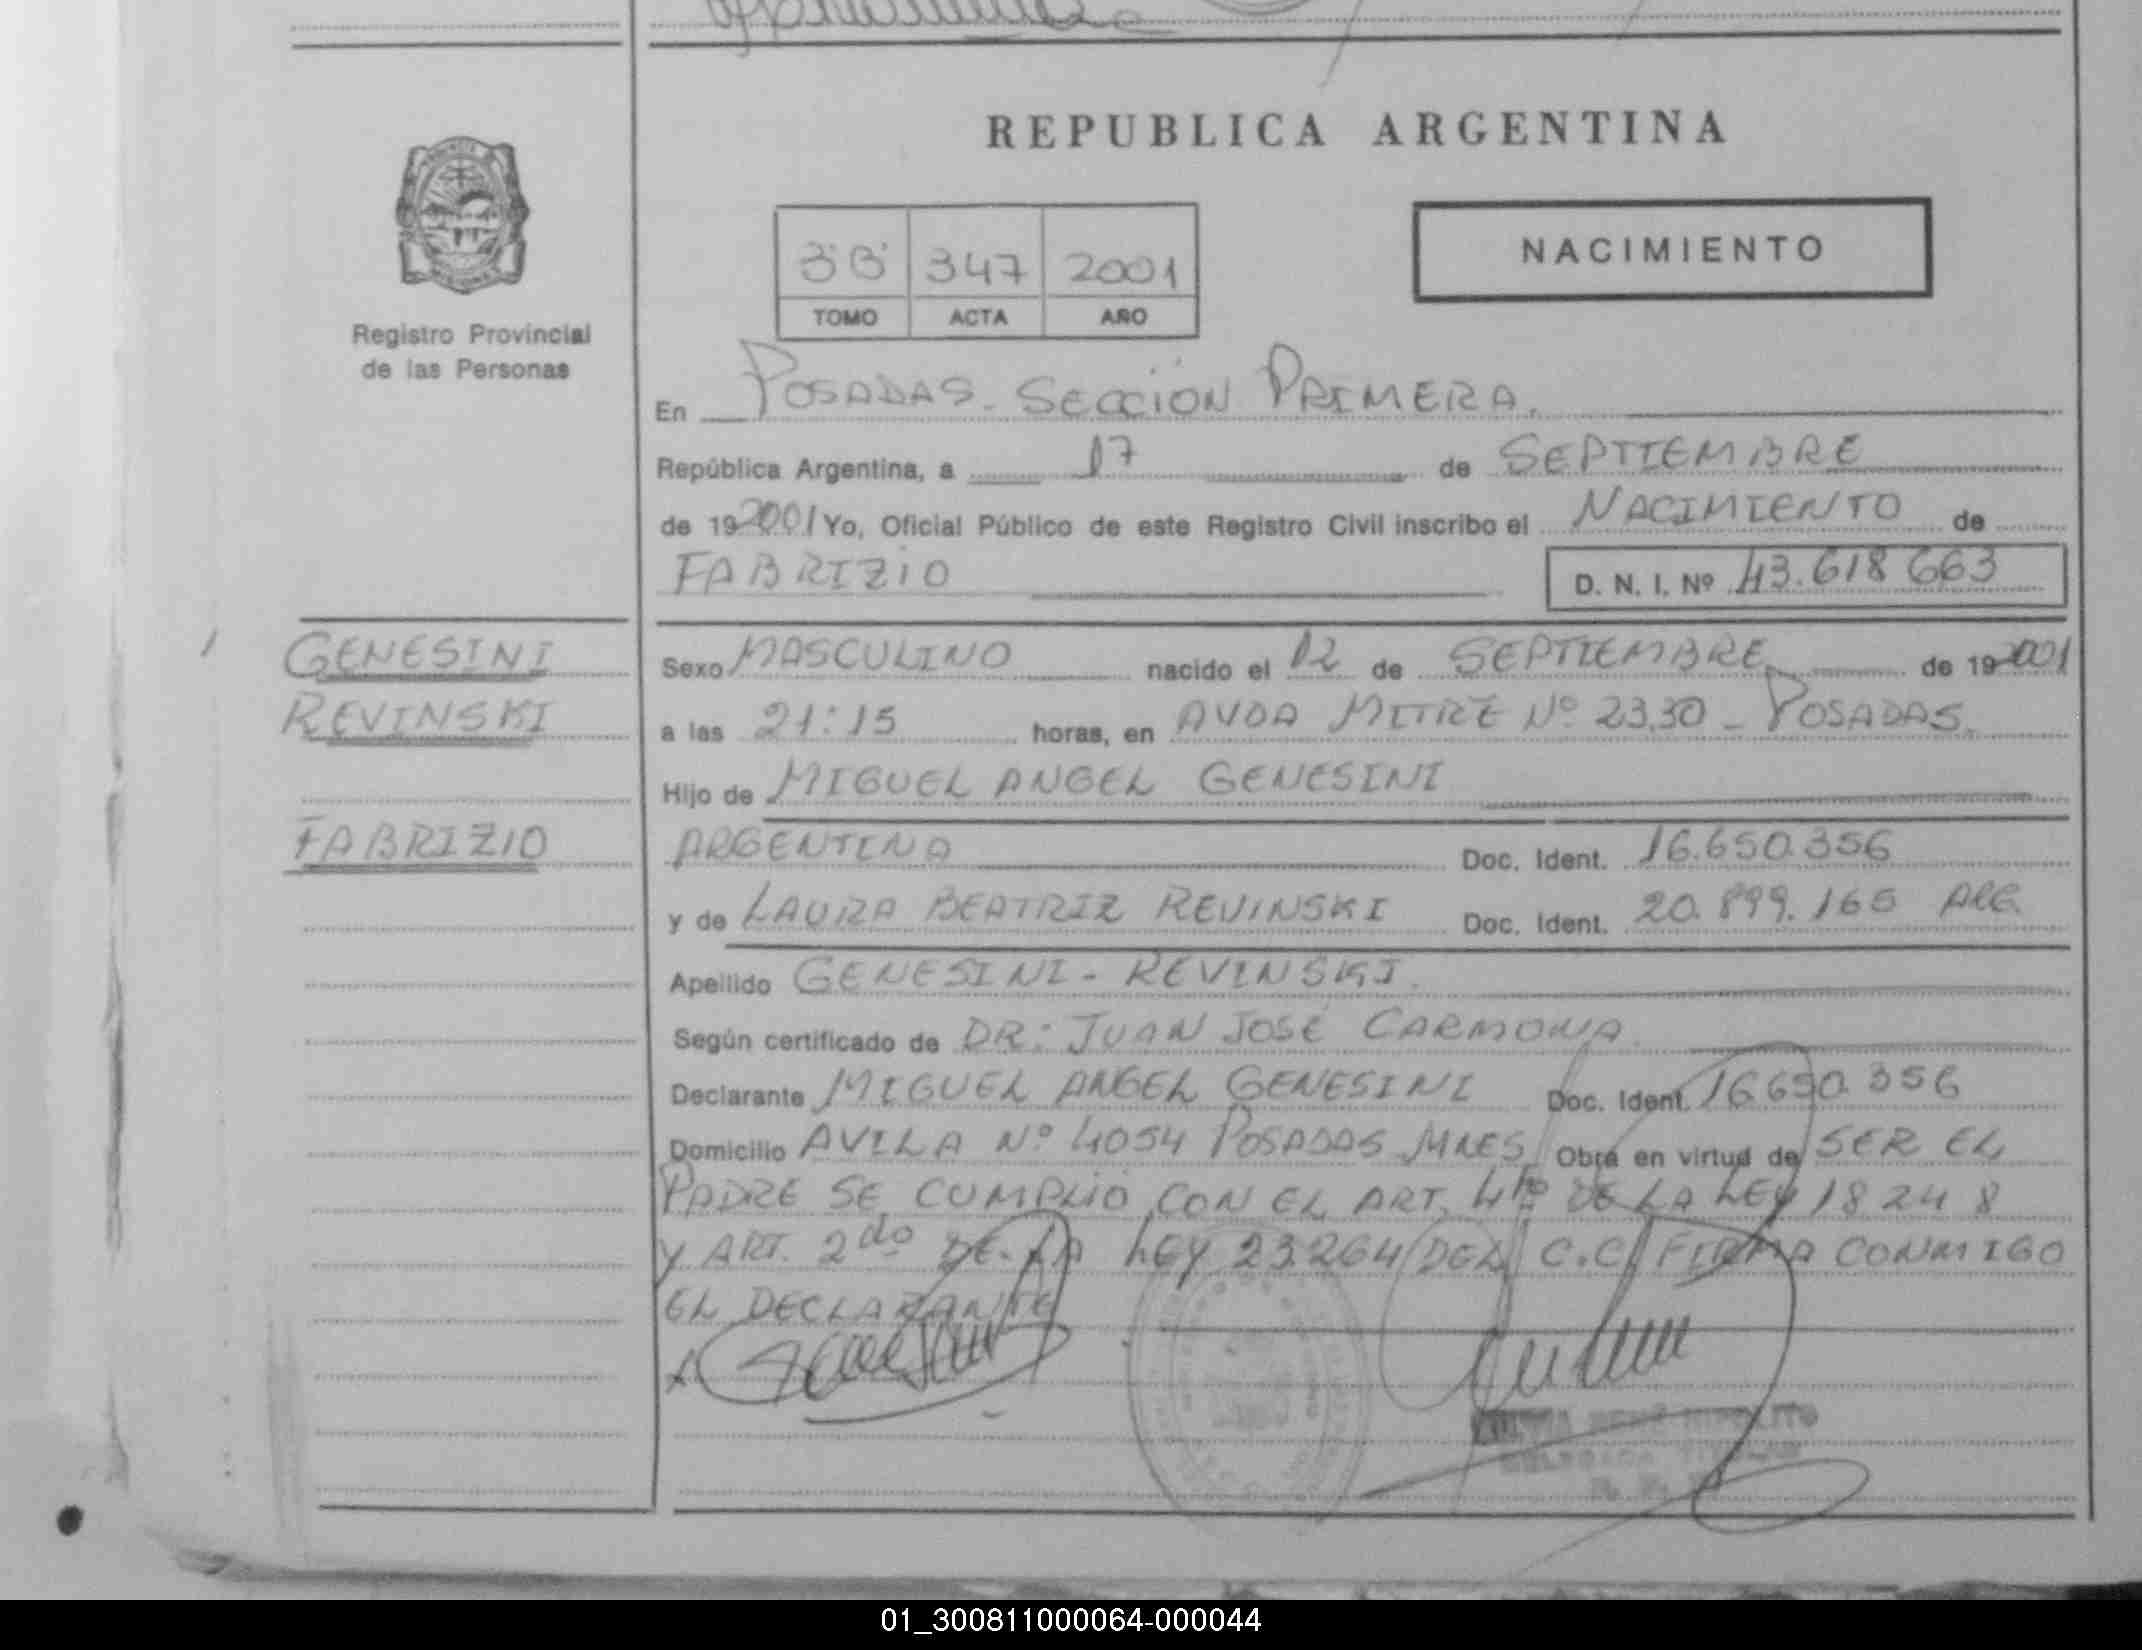 REPUBLICA ARGENTINA
NACIMIENTO
3'B' 347 2001
TOMO ACTA AÑO
Registro Provincial
de las Personas
En POSADAS. SECCION PRIMERA.
República Argentina, a 17 de SEPTIEMBRE
de 19 2001 Yo, Oficial Público de este Registro Civil inscribo el NACIMIENTO de
FABRIZIO D. N. I. Nº 43.618 663
GENESINI
REVINSKI
FABRIZIO
Sexo MASCULINO nacido el 12 de SEPTIEMBRE de 19 2001
a las 21:15 horas, en AVDA MITRE Nº 2330 - POSADAS.
Hijo de MIGUEL ANGEL GENESINI
ARGENTINA Doc. Ident. 16.650.356
y de LAURA BEATRIZ REVINSKI Doc. Ident. 20.899.165 ARG.
Apellido GENESINI - REVINSKI.
Según certificado de DR: JUAN JOSÉ CARMONA
Declarante MIGUEL ANGEL GENESINI Doc. Ident. 16.650.356
Domicilio AVILA Nº 4054 POSADAS MNES Obra en virtud de SER EL
PADRE SE CUMPLIO CON EL ART. 4to DE LA LEY 18248
Y ART. 2do DE LA LEY 23.264 DEL C.C. FIRMA CONMIGO
EL DECLARANTE
HIPOLITO
01_300811000064-000044